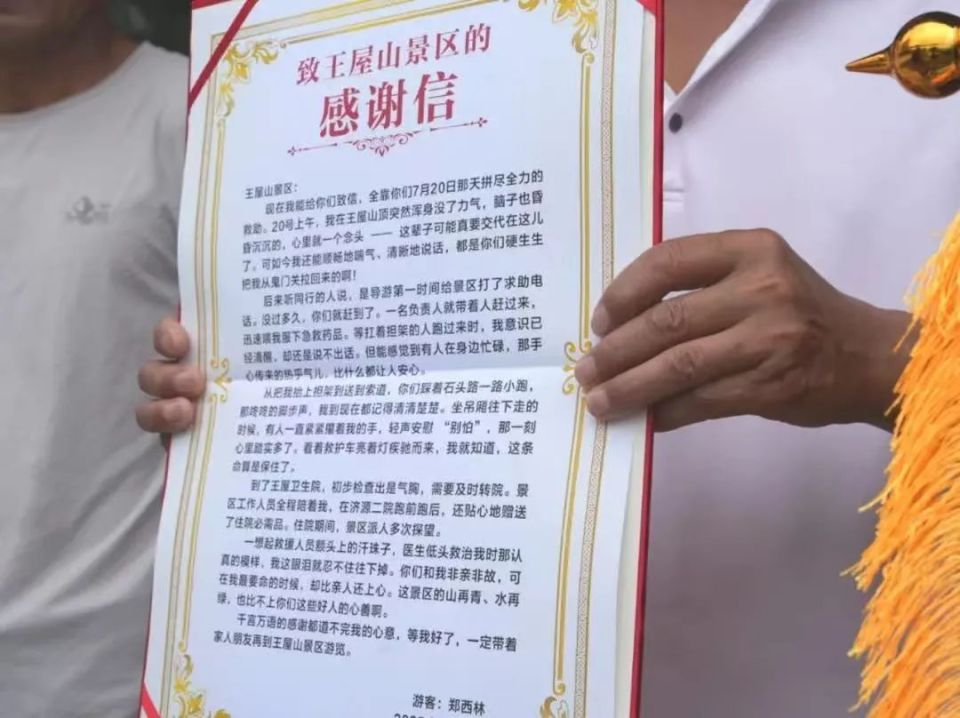 致王屋山景区的
感谢信
王屋山景区：
现在我能给你们致信，全靠你们7月20日那天拼尽全力的
救助。20号上午，我在王屋山顶突然浑身没了力气，脑子也昏
昏沉沉的，心里就一个念头 —— 这辈子可能真要交代在这儿
了。可如今我还能顺畅地喘气、清晰地说话，都是你们硬生生
把我从鬼门关拉回来的啊！
后来听同行的人说，是导游第一时间给景区打了求助电
话。没过多久，你们就赶到了。一名负责人就带着人赶过来，
迅速喂我服下急救药品。等扛着担架的人跑过来时，我意识已
经清醒，却还是说不出话。但能感觉到有人在身边忙碌，那手
心传来的热乎气儿，比什么都让人安心。
从把我抬上担架到送到索道，你们踩着石头路一路小跑，
那咚咚的脚步声，我到现在都记得清清楚楚。坐吊厢往下走的
时候，有人一直紧紧握着我的手，轻声安慰“别怕”，那一刻
心里踏实多了。看着救护车亮着灯疾驰而来，我就知道，这条
命算是保住了。
到了王屋卫生院，初步检查出是气胸，需要及时转院。景
区工作人员全程陪着我，在济源二院跑前跑后，还贴心地赠送
了住院必需品。住院期间，景区派人多次探望。
一想起救援人员额头上的汗珠子，医生低头救治我时那认
真的模样，我这眼泪就忍不住往下掉。你们和我非亲非故，可
在我最要命的时候，却比亲人还上心。这景区的山再青、水再
绿，也比不上你们这些好人的心善啊。
千言万语的感谢都道不完我的心意，等我好了，一定带着
家人朋友再到王屋山景区游览。
游客：郑西林